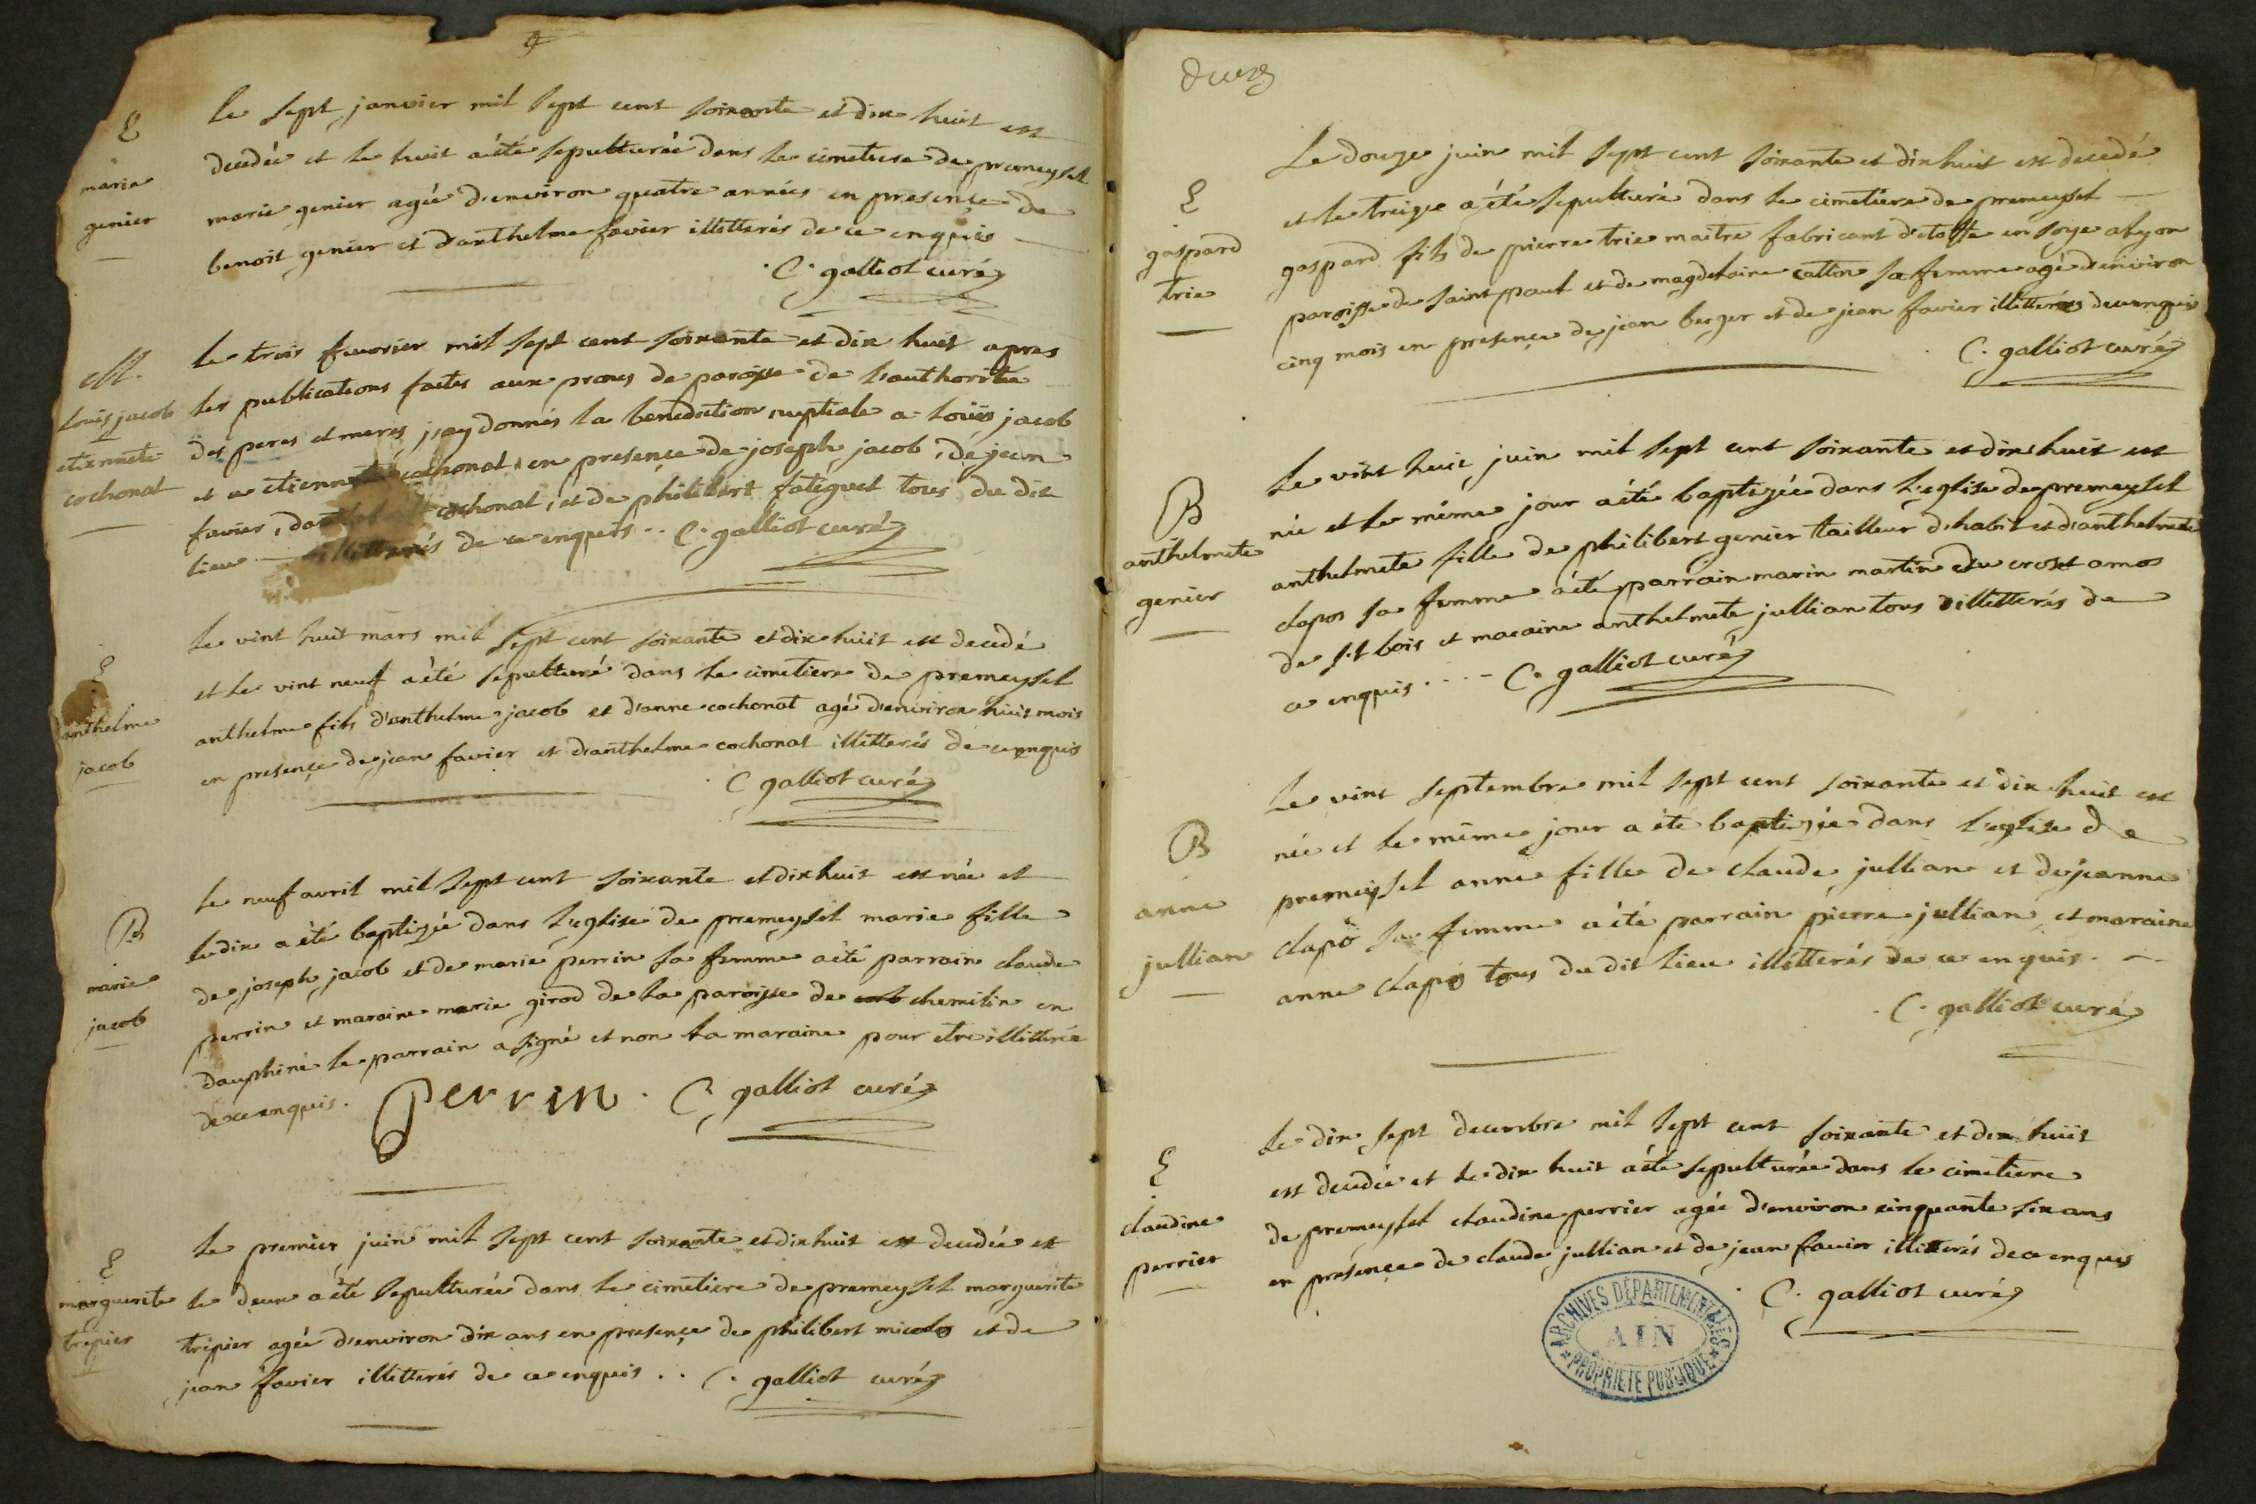 E
marie
genier
le sept janvier mil sept cent soixante et dix huit est
decedée et le huit a été sepulturée dans le cimetiere de premeysel
marie genier agée d'environ quatre années en presençe de
benoit genier et d'anthelme favier illitterés de ce enquis
C. galliot curé
M.
Louis jacob
etiennete
cochonat
le trois fevrier mil sept cent soixante et dix huit apres
les publications faites aux prones de paroisse de l'authorité
des peres et meres j'ay donnés la benediction nuptiale a Louis jacob
et a etiennete cochonat en presençe de joseph jacob, de jean
favier, cochonat, et de philibert fateguet tous du dit
lieu illitterés de ce enquis.. C. galliot curé
E
anthelme
jacob
le vint huit mars mil sept cent soixante et dix huit est decedé
et le vint neuf a été sepulturé dans le cimetiere de premeysel
anthelme fils d'anthelme jacob et d'anne cochonat agé d'environ huit mois
en presençe de jean favier et d'anthelme cochonat illitterés de ce enquis
C galliot curé
B
marie
jacob
le neuf avril mil sept cent soixante et dix huit est née et
le dix a été baptizée dans l'eglise de premeysel marie fille
de joseph jacob et de marie perrin sa femme a été parrain claude
perrin et maraine marie girod de la paroisse de chemilin en
dauphiné le parrain a signé et non la maraine pour etre illitterée
de ce enquis. Perrin. C. galliot curé
E
marguerite
trepier
le premier juin mil sept cent soixante et dix huit est decedée et
le deux a été sepulturée dans le cimetiere de premeysel marguerite
trepier agée d'environ dix ans en presençe de philibert micolo et de
jean favier illitterés de ce enquis .. C. galliot curé
deux
E
gaspard
trie
Le douze juin mil sept cent soixante et dix huit est decedé
et le treize a été sepulturé dans le cimetiere de premeysel
gaspard fils de pierre trie maitre fabricant d'etoffe en soye a lyon
paroisse de saint paul et de magdelaine catlin sa femme agé d'environ
cinq mois en presençe de jean berger et de jean favier illitterés de ce enquis
C. galliot curé
B
anthelmete
genier
le vint huit juin mil sept cent soixante et dix huit est
née et le même jour a été baptizée dans l'eglise de premeysel
anthelmete fille de philibert genier tailleur d'habit et d'anthelmete
clapos sa femme a été parrain marin martin du croset amo
de st bois et maraine anthelmete jullian tous illitterés de
ce enquis .... C. galliot curé
B
anne
jullian
le vint septembre mil sept cent soixante et dix huit est
née et le même jour a été baptizée dans l'eglise de
premeysel anne fille de claude jullian et de jeanne
clapo sa femme a été parrain pierre jullian, et maraine
anne clapo tous du dit lieu illitterés de ce enquis.
C. galliot curé
E
claudine
perrier
le dix sept decembre mil sept cent soixante et dix huit
est decedée et le dix huit a été sepulturée dans le cimetiere
de premeysel claudine perrier agée d'environ cinquante six ans
en présençe de claude jullian et de jean favier illitterés de ce enquis
C. galliot curé
ARCHIVES DÉPARTEMENTALES
AIN
PROPRIÉTÉ PUBLIQUE